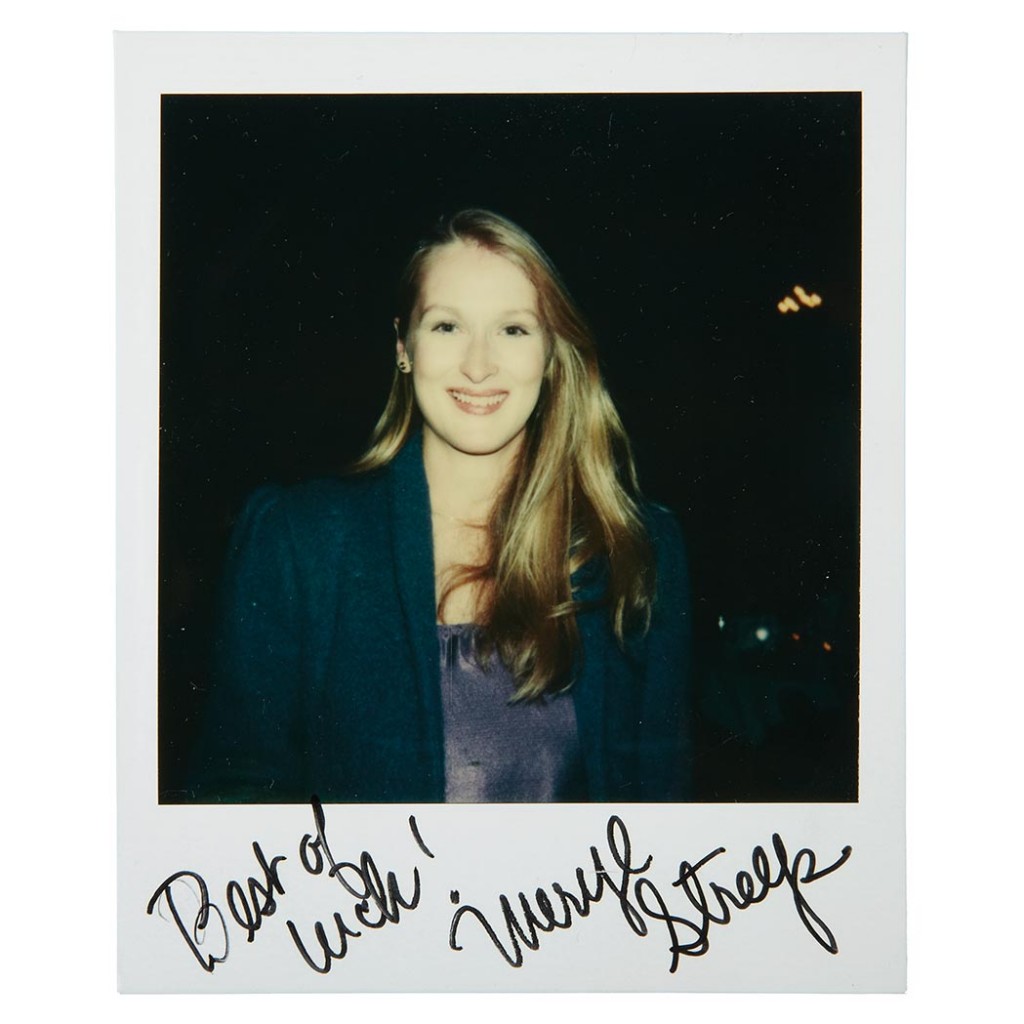 Best of luck!
Meryl Streep